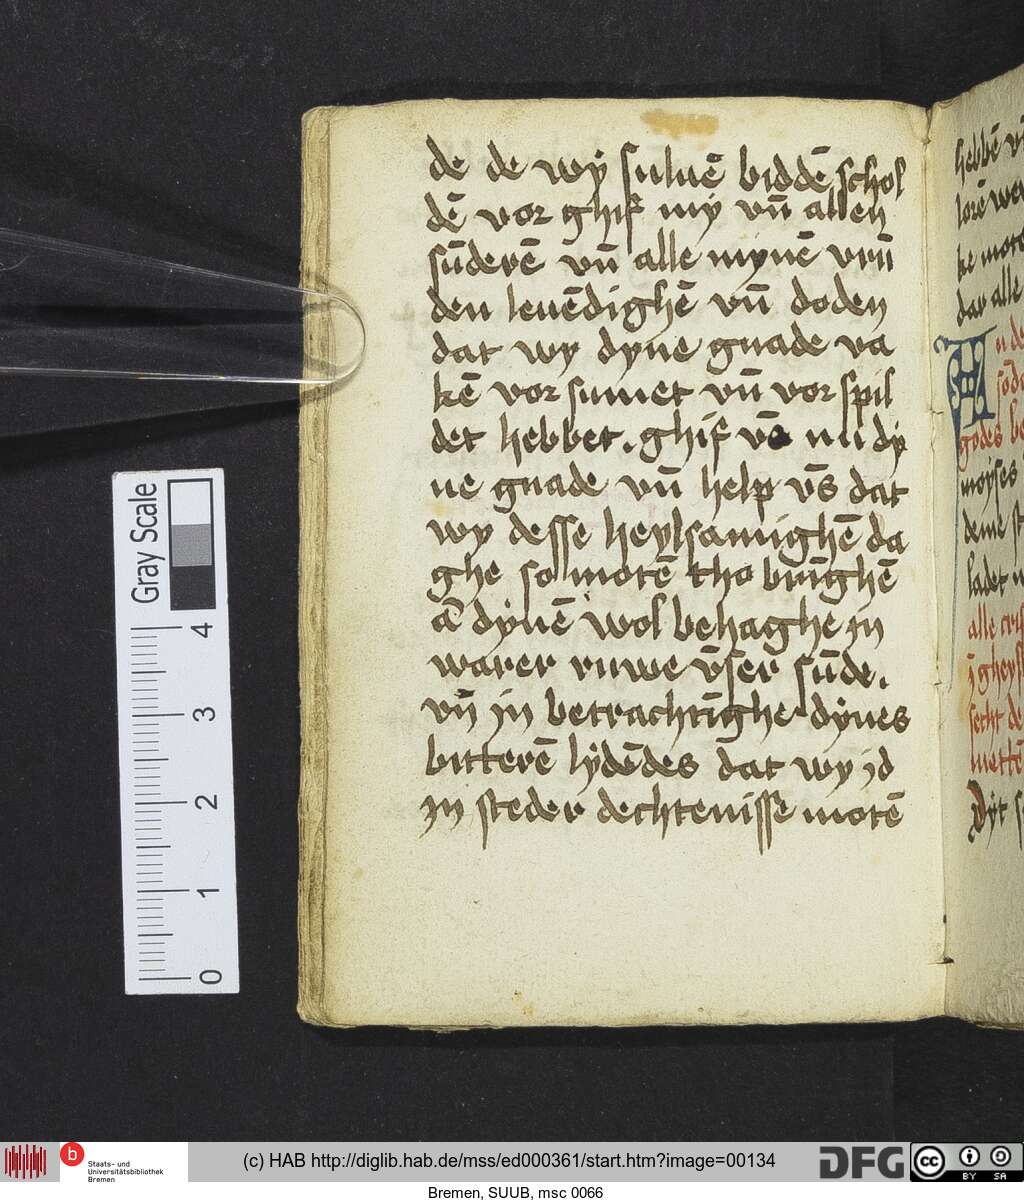 de de wÿ suluē biddē schol
dē vor ghif mÿ vn̄ allen
sūderē vn̄ alle mynē vrū  
den leuēdighē vn̄ doden
dat wy dyne gnade va
kē vor sumet vn̄ vor spil
det hebbet . ghif vs̄ nu dÿ
ne gnade vn̄ help vs̄ dat
wy desse heylsamighē da
ghe so motē tho brīghē
also dynē wol behaghe jn
warer ruwe vser sūde .
vn̄ jn betrachtīghe dÿnes
bitterē lÿdēdes dat wy jd
jn steder dechtenisse motē
hebbē
lorē
ke
dar alle
n de
godes
moyses
deme
ladet
alle
secht de
Dÿt
Gray Scale
4
3
2
1
0
b
Staats- und
Universitätsbibliothek
Bremen
(c) HAB http://diglib.hab.de/mss/ed000361/start.htm?image=00134
DFG
cc
BY
SA
Bremen, SUUB, msc 0066